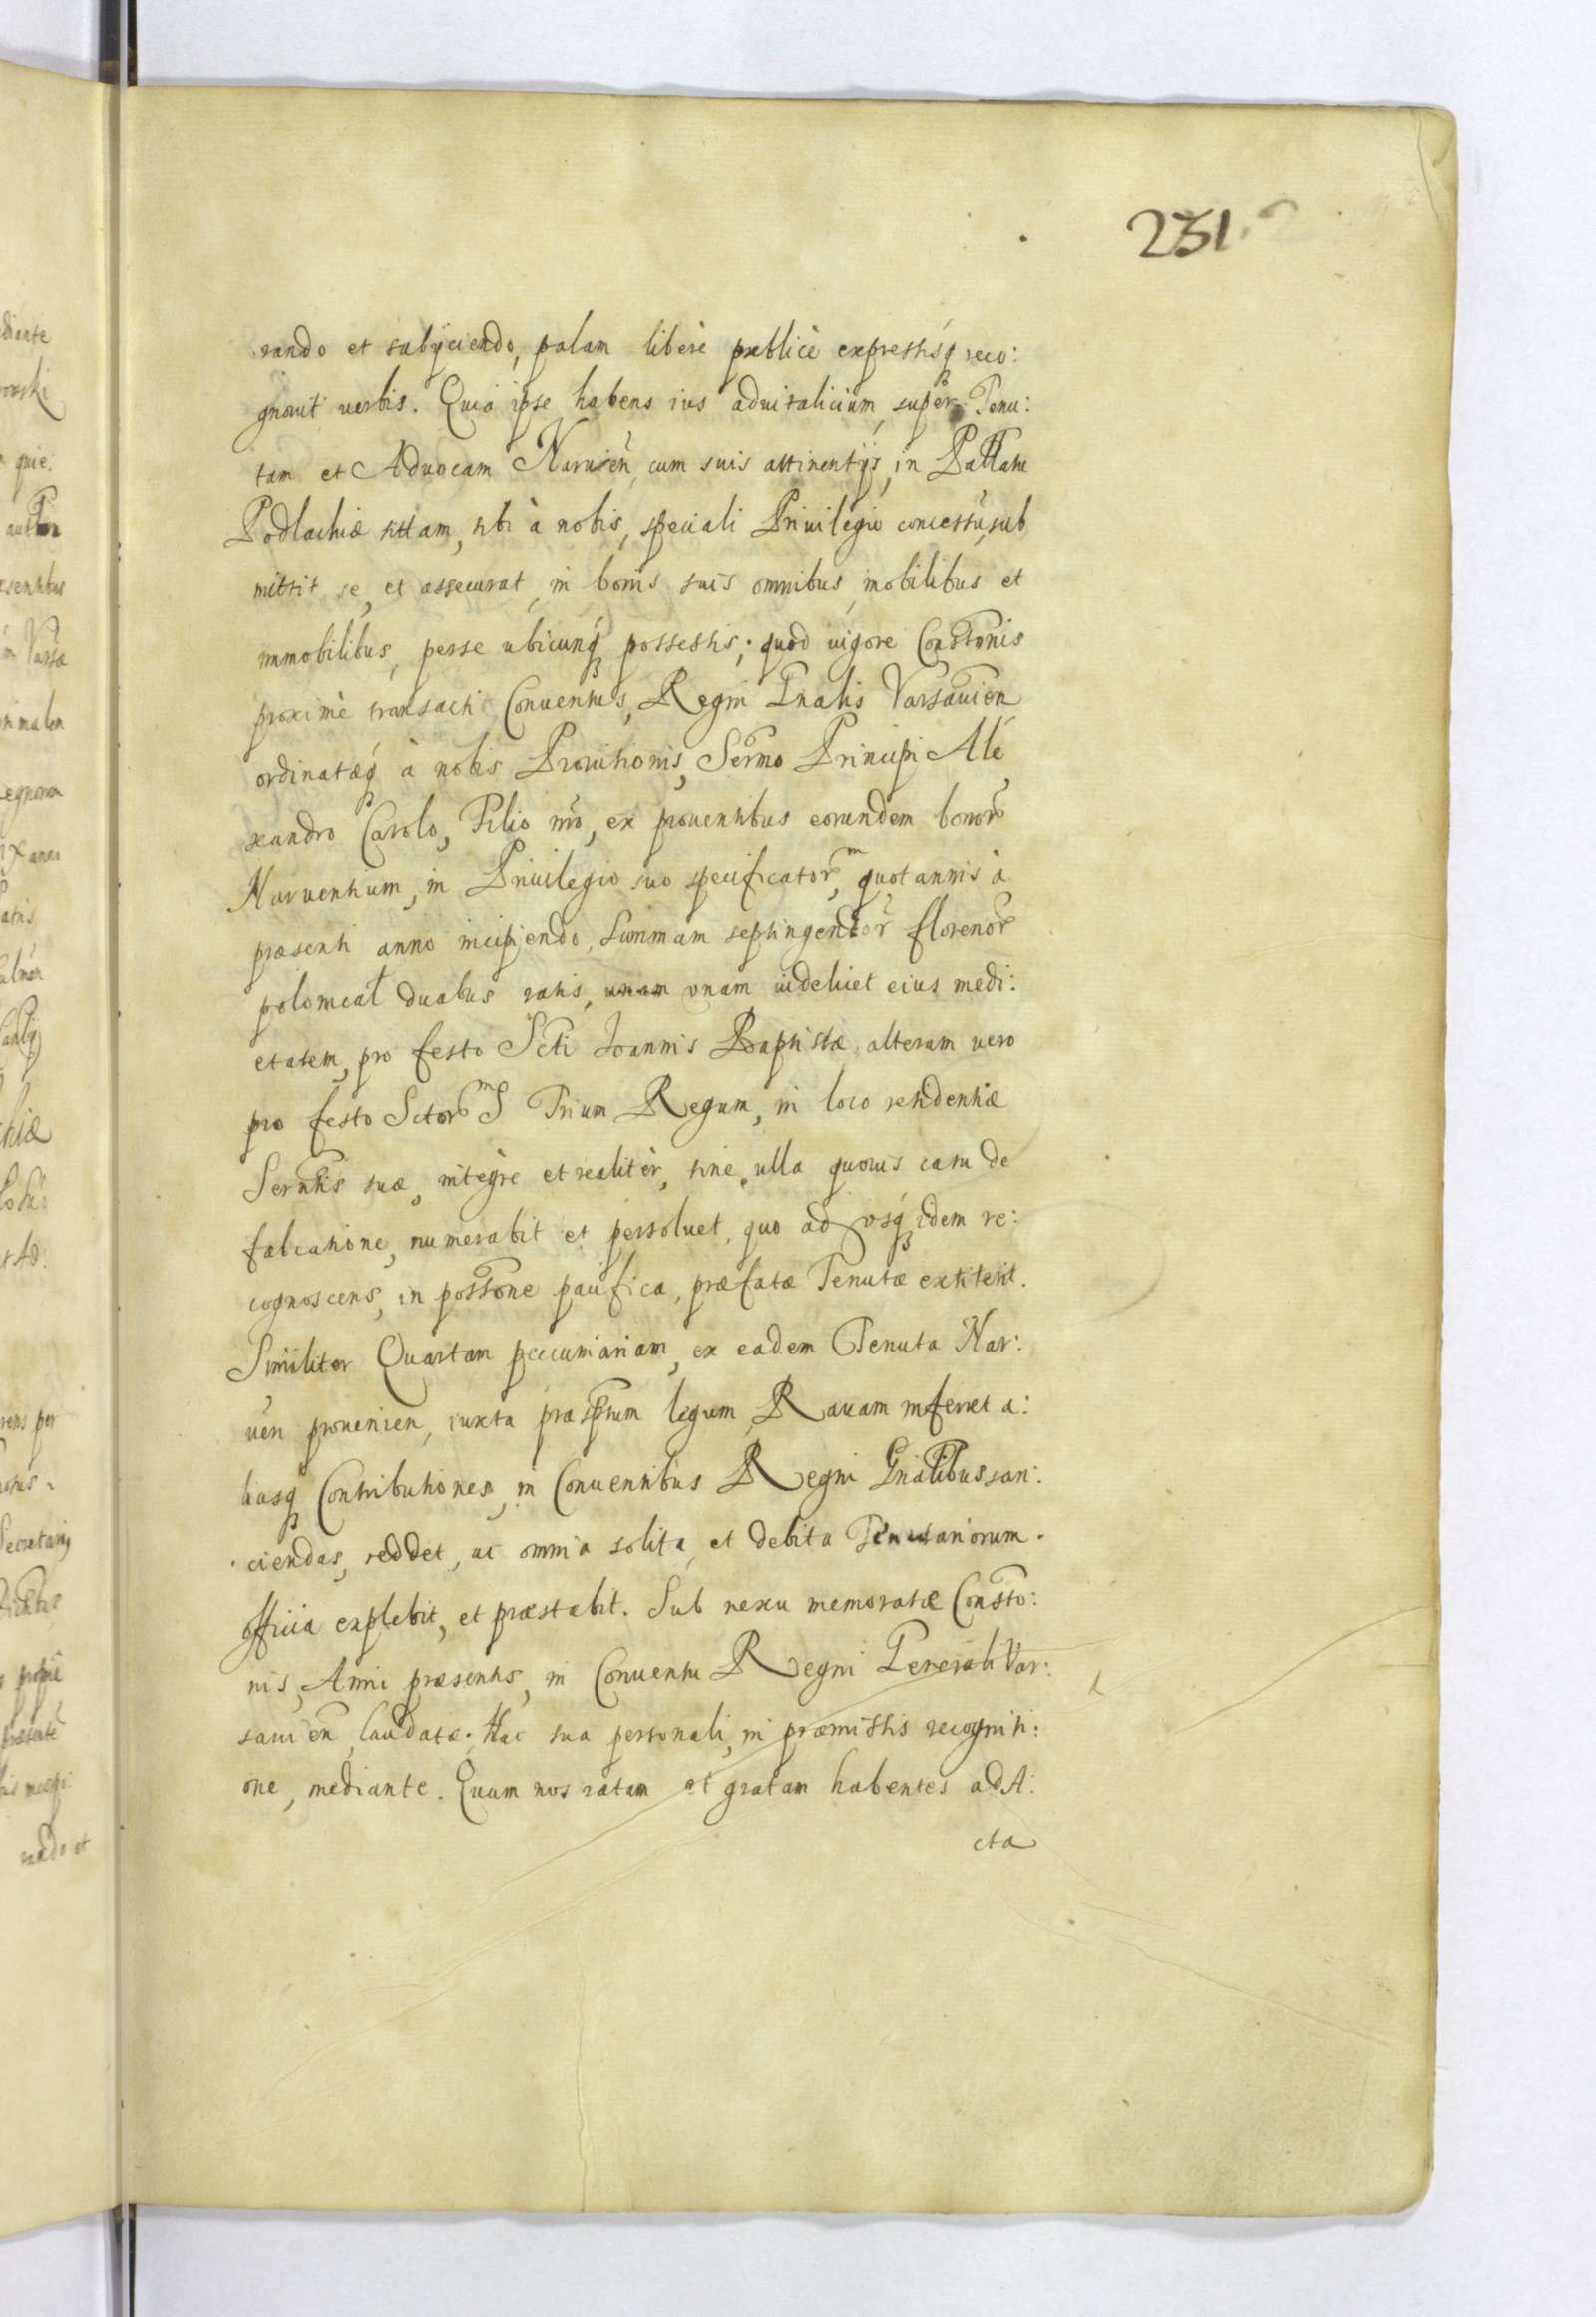 231
rando et subÿciendo, palam liberè publicè expressisq́ reco:
gnouit verbis. Quia ipse habens ius aduitalicium, super Tenu:
tam et Aduocam Naruien̄, cum suis attinentÿs, in Pallatu
Podlachiæ sittam, sibi à nobis, speciali Priuilegio concessū, sub
mittit se, et assecurat, in bonis suis omnibus, mobilibus et
immobilibus, perse ubicunq́ possessis; quod uigore Conststonis
proximè transacti Conuentus, Regni Gnalis Varsauien
ordinatæq́ à nobis Prouisionis, Sermo Principi Ale
xandro Carolo, Filio nr̄o, ex prouentibus eorundem bonor̄
Naruensium, in Priuilegio suo specificator̄m, quotannis à
præsenti anno incipiendo, Summam septingentor̄ florenor̄
polonical duabus ratis, unam vnam uidelicet eius medi:
etatem, pro festo Scti Ioannis Baptistæ, alteram vero
pro festo Sctor̄m S Trium Regum, in loco residentiæ
Serntis suæ, integrè et realitèr, sine ulla quouis casu de
falcatione, numerabit et persoluet, quo ad vsq́ idem re:
cognoscens, in possone pacifica, præfatæ Tenutæ extiterit.
Similiter Quartam pecuniariam, ex eadem Tenuta Nar:
uen̄ prouenien, iuxta præsptum legum, Rauam inferret a:
liasq́ Contributiones, in Conuentibus Regni Gnalibus san:
ciendas, reddet, ac omnia solita, et debita Tenutariorum
officia explebit, et præstabit. Sub nexu memoratæ Constto:
nis, Anni præsentis, in Conuentu Regni Generali Var:
sauien̄, laudatæ. Hac sua personali, in præmissis recogniti:
one, mediante. Quam nos ratam et gratam habentes ad A:
cta